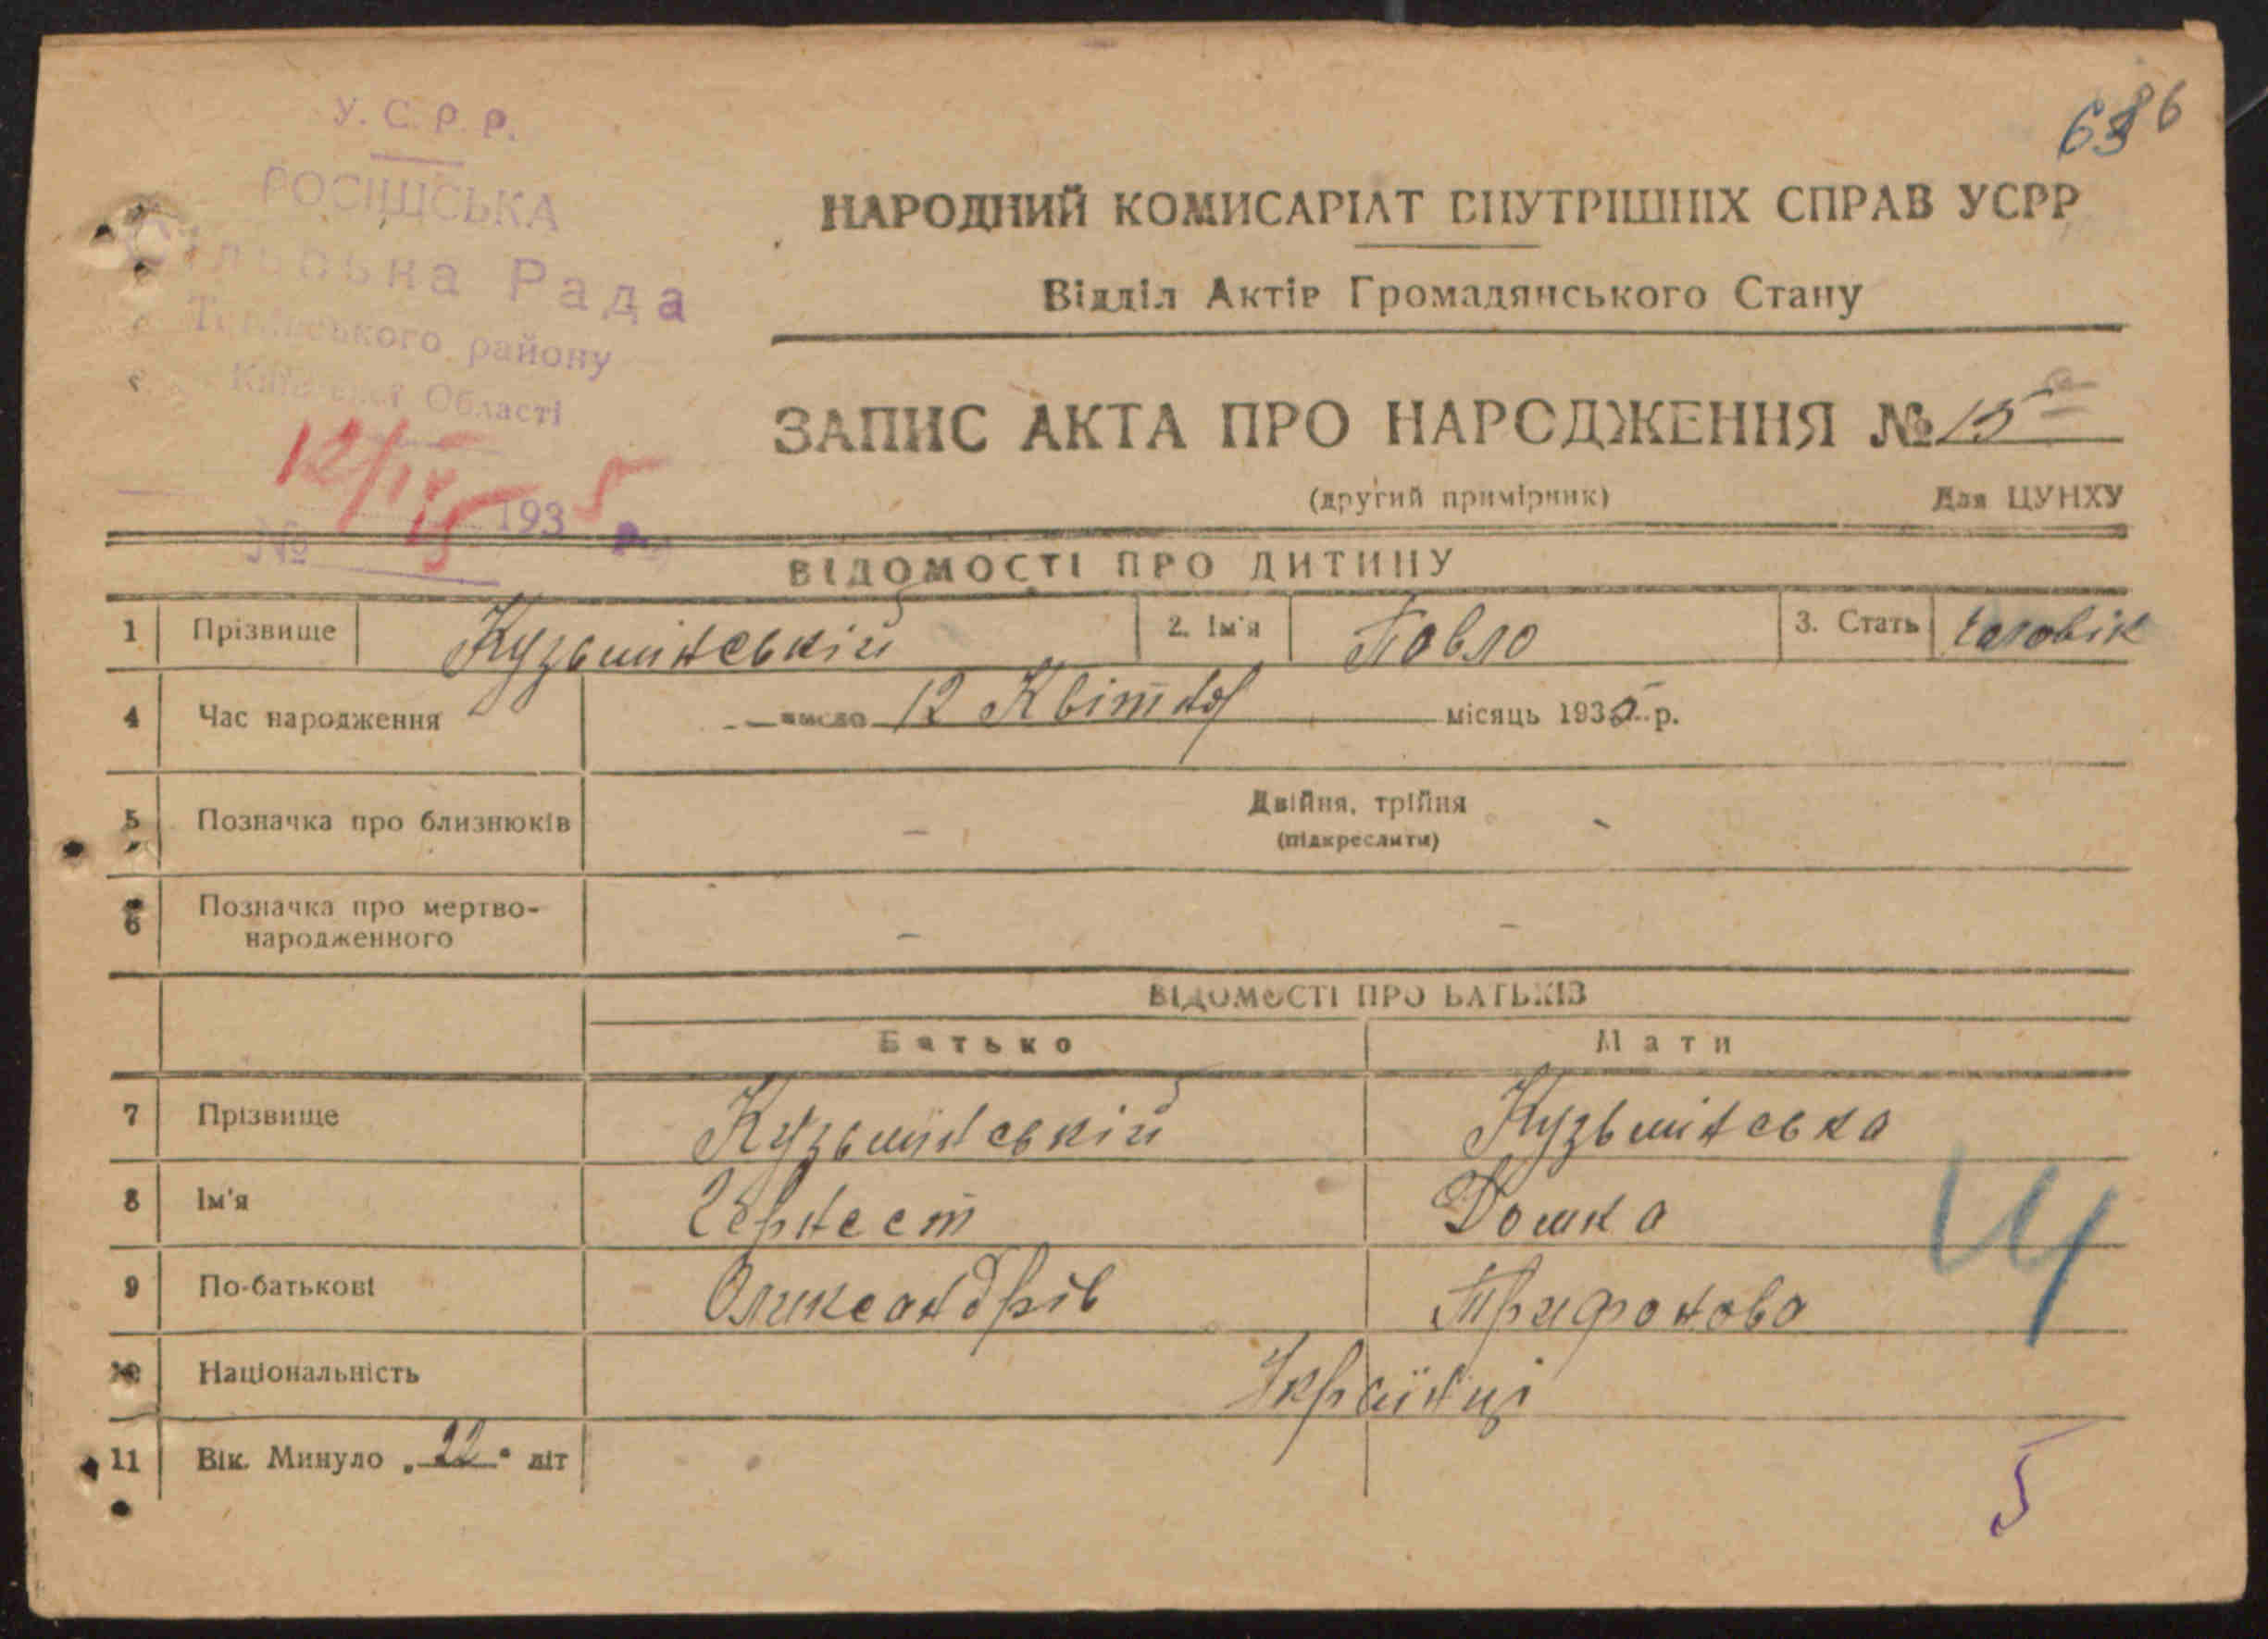 У. С. Р. Р.
РОСІШСЬКА
Сільська Рада
району
Області
12/IV 1935 р.
№ 15
686
НАРОДНИЙ КОМИСАРІАТ ВНУТРІШНІХ СПРАВ УСРР
Відділ Актів Громадянського Стану
ЗАПИС АКТА ПРО НАРОДЖЕННЯ № 15
(другий примірник) Для ЦУНХУ
ВІДОМОСТІ ПРО ДИТИНУ
1 Прізвище Кузьмінській 2. Ім'я Павло 3. Стать Чоловік
4 Час народження число 12 Квітня місяць 1935 р.
5 Позначка про близнюків Двійня, трійня
(підкреслити)
6 Позначка про мертво-
народженного
ВІДОМОСТІ ПРО БАТЬКІВ
Батько Мати
7 Прізвище Кузьмінській Кузьмінська
8 Ім'я Домка
9 По-батькові Олександрів Трифонова
10 Національність Українці
11 Вік. Минуло „22“ літ
5